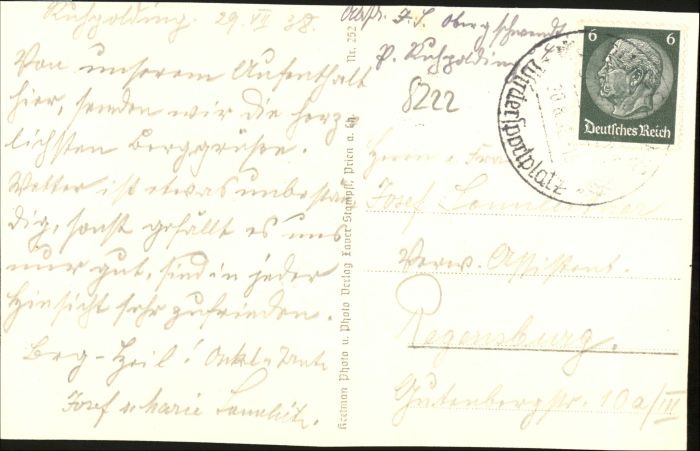 Ruhpolding. 29. VII 38.
Von unserem Aufenthalt
hier, senden wir die herz
lichsten Berggrüsse.
Wetter ist etwas unbestän
dig, sonst gefällt es uns
nur gut, sind in jeder
Hinsicht sehr zufrieden.
Berg-Heil! Onkel u Tante
Josef u. Marie
Kretman Photo u. Photo Verlag Xaver Stampfl, Prien a. Ch. Nr. 252
Abs. F. S. Obergschwendt
P. Ruhpolding
8222
6 6
Deutsches Reich
Wintersportplatz
Herrn u. Frau
Josef
Verw. Assistent.
Regensburg.
Gutenbergstr. 10a/III